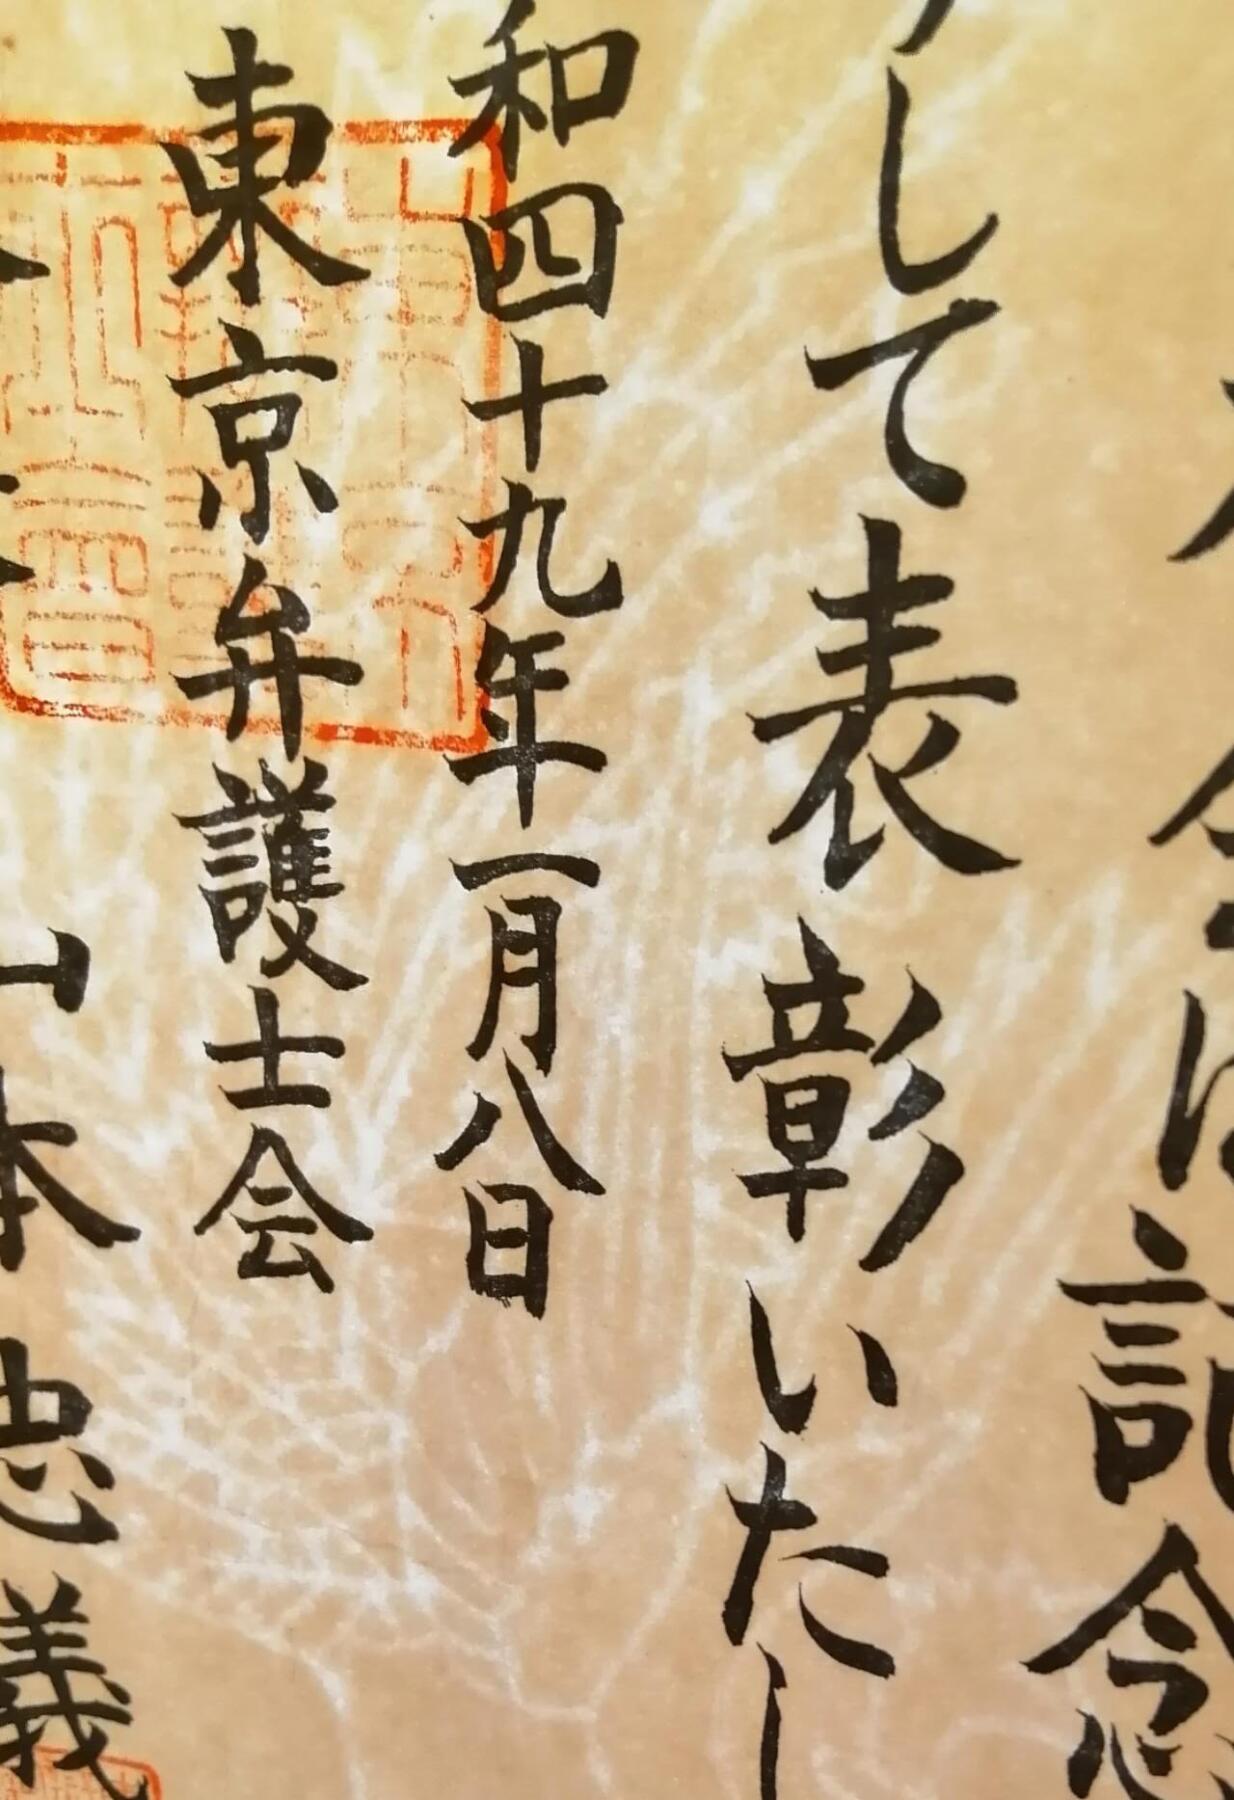 会は記念
して表彰いたし
和四十九年一月八日
東京弁護士会
山本忠義